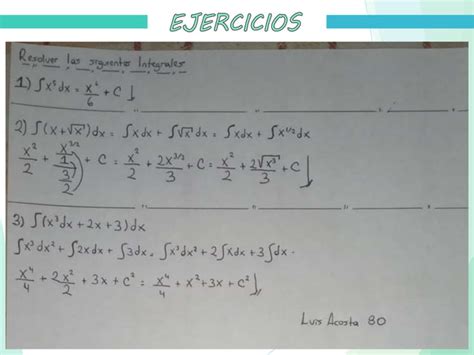 EJERCICIOS
Resolver las siguientes Integrales
1) ∫x⁵dx = x⁶/6 + C
2) ∫(x+√x)dx = ∫xdx + ∫√x dx = ∫xdx + ∫x^1/2 dx
x²/2 + x^3/2/(3/2) + C = x²/2 + 2x^3/2/3 + C = x²/2 + 2√x³/3 + C
3) ∫(x³dx + 2x + 3)dx
∫x³dx² + ∫2xdx + ∫3dx = ∫x³dx² + 2∫xdx + 3∫dx
x⁴/4 + 2x²/2 + 3x + C² = x⁴/4 + x² + 3x + C
Luis Acosta 80